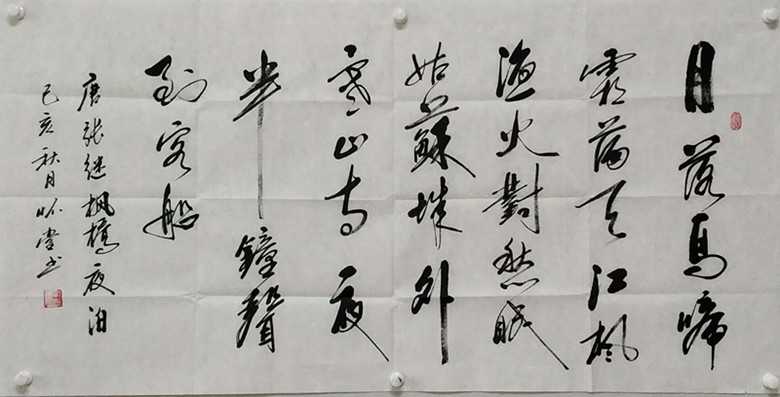 月落烏啼
霜滿天江楓
漁火對愁眠
姑蘇城外
寒山寺夜
半鐘聲
到客船
唐張继楓橋夜泊
己亥秋月堂书